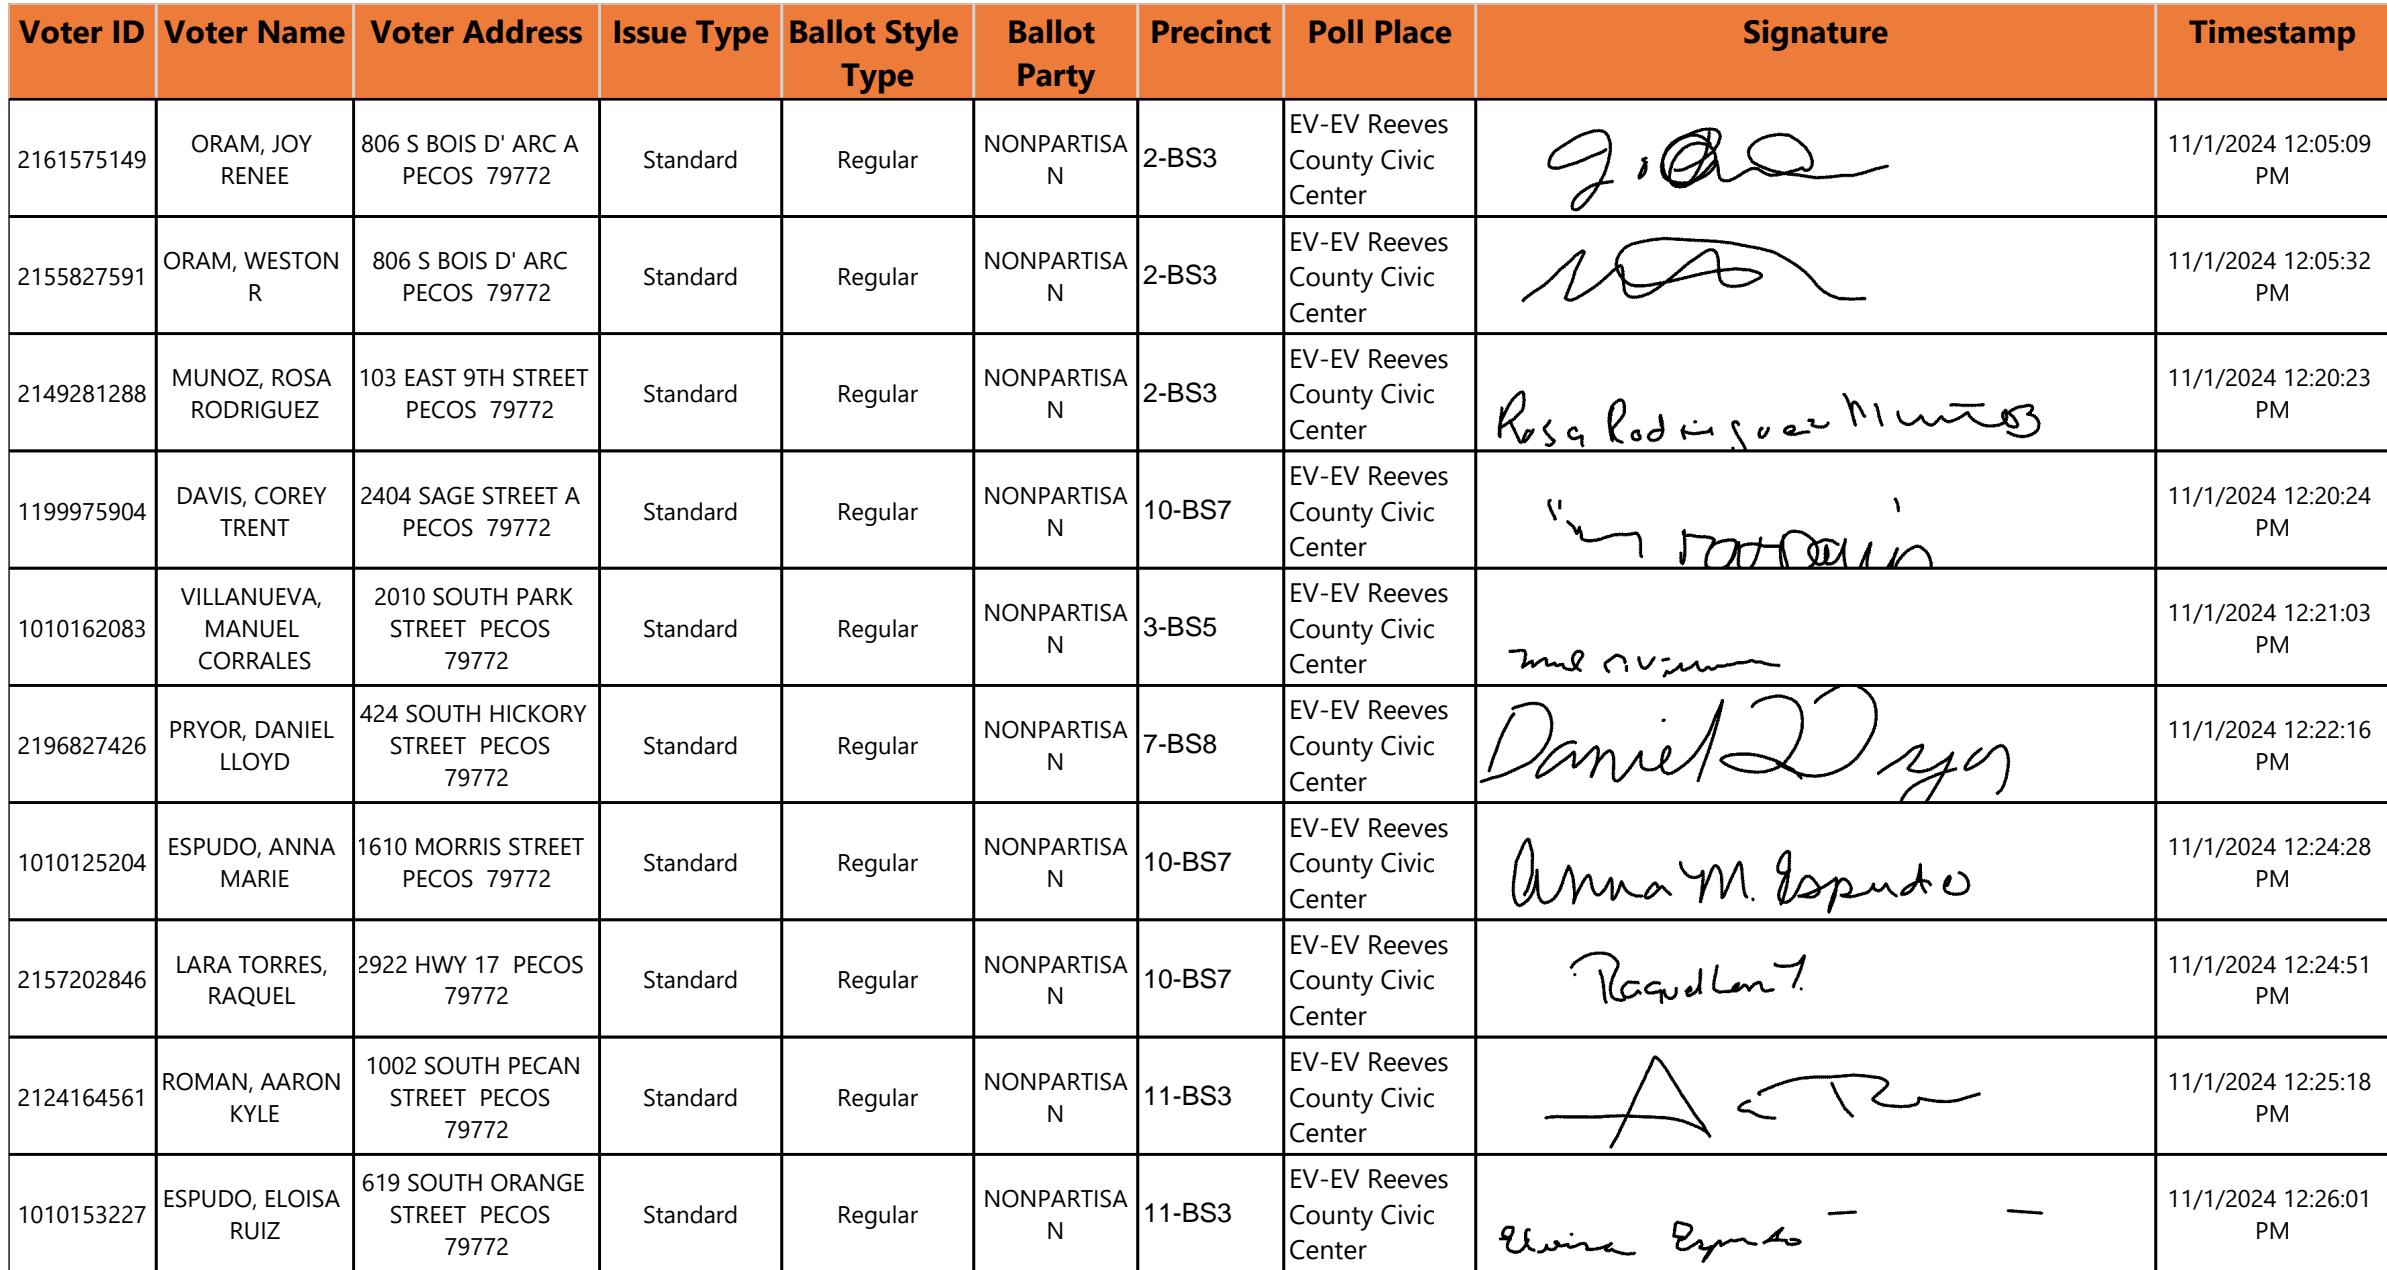 Voter ID Voter Name Voter Address Issue Type Ballot Style Type Ballot Party Precinct Poll Place Signature Timestamp
2161575149 ORAM, JOY RENEE 806 S BOIS D' ARC A PECOS 79772 Standard Regular NONPARTISAN 2-BS3 EV-EV Reeves County Civic Center 11/1/2024 12:05:09 PM
2155827591 ORAM, WESTON R 806 S BOIS D' ARC PECOS 79772 Standard Regular NONPARTISAN 2-BS3 EV-EV Reeves County Civic Center 11/1/2024 12:05:32 PM
2149281288 MUNOZ, ROSA RODRIGUEZ 103 EAST 9TH STREET PECOS 79772 Standard Regular NONPARTISAN 2-BS3 EV-EV Reeves County Civic Center Rosa Rodriguez Muñoz 11/1/2024 12:20:23 PM
1199975904 DAVIS, COREY TRENT 2404 SAGE STREET A PECOS 79772 Standard Regular NONPARTISAN 10-BS7 EV-EV Reeves County Civic Center 11/1/2024 12:20:24 PM
1010162083 VILLANUEVA, MANUEL CORRALES 2010 SOUTH PARK STREET PECOS 79772 Standard Regular NONPARTISAN 3-BS5 EV-EV Reeves County Civic Center 11/1/2024 12:21:03 PM
2196827426 PRYOR, DANIEL LLOYD 424 SOUTH HICKORY STREET PECOS 79772 Standard Regular NONPARTISAN 7-BS8 EV-EV Reeves County Civic Center Daniel L Pryor 11/1/2024 12:22:16 PM
1010125204 ESPUDO, ANNA MARIE 1610 MORRIS STREET PECOS 79772 Standard Regular NONPARTISAN 10-BS7 EV-EV Reeves County Civic Center Anna M. Espudo 11/1/2024 12:24:28 PM
2157202846 LARA TORRES, RAQUEL 2922 HWY 17 PECOS 79772 Standard Regular NONPARTISAN 10-BS7 EV-EV Reeves County Civic Center Raquel Lara T. 11/1/2024 12:24:51 PM
2124164561 ROMAN, AARON KYLE 1002 SOUTH PECAN STREET PECOS 79772 Standard Regular NONPARTISAN 11-BS3 EV-EV Reeves County Civic Center 11/1/2024 12:25:18 PM
1010153227 ESPUDO, ELOISA RUIZ 619 SOUTH ORANGE STREET PECOS 79772 Standard Regular NONPARTISAN 11-BS3 EV-EV Reeves County Civic Center Eloisa Espudo 11/1/2024 12:26:01 PM